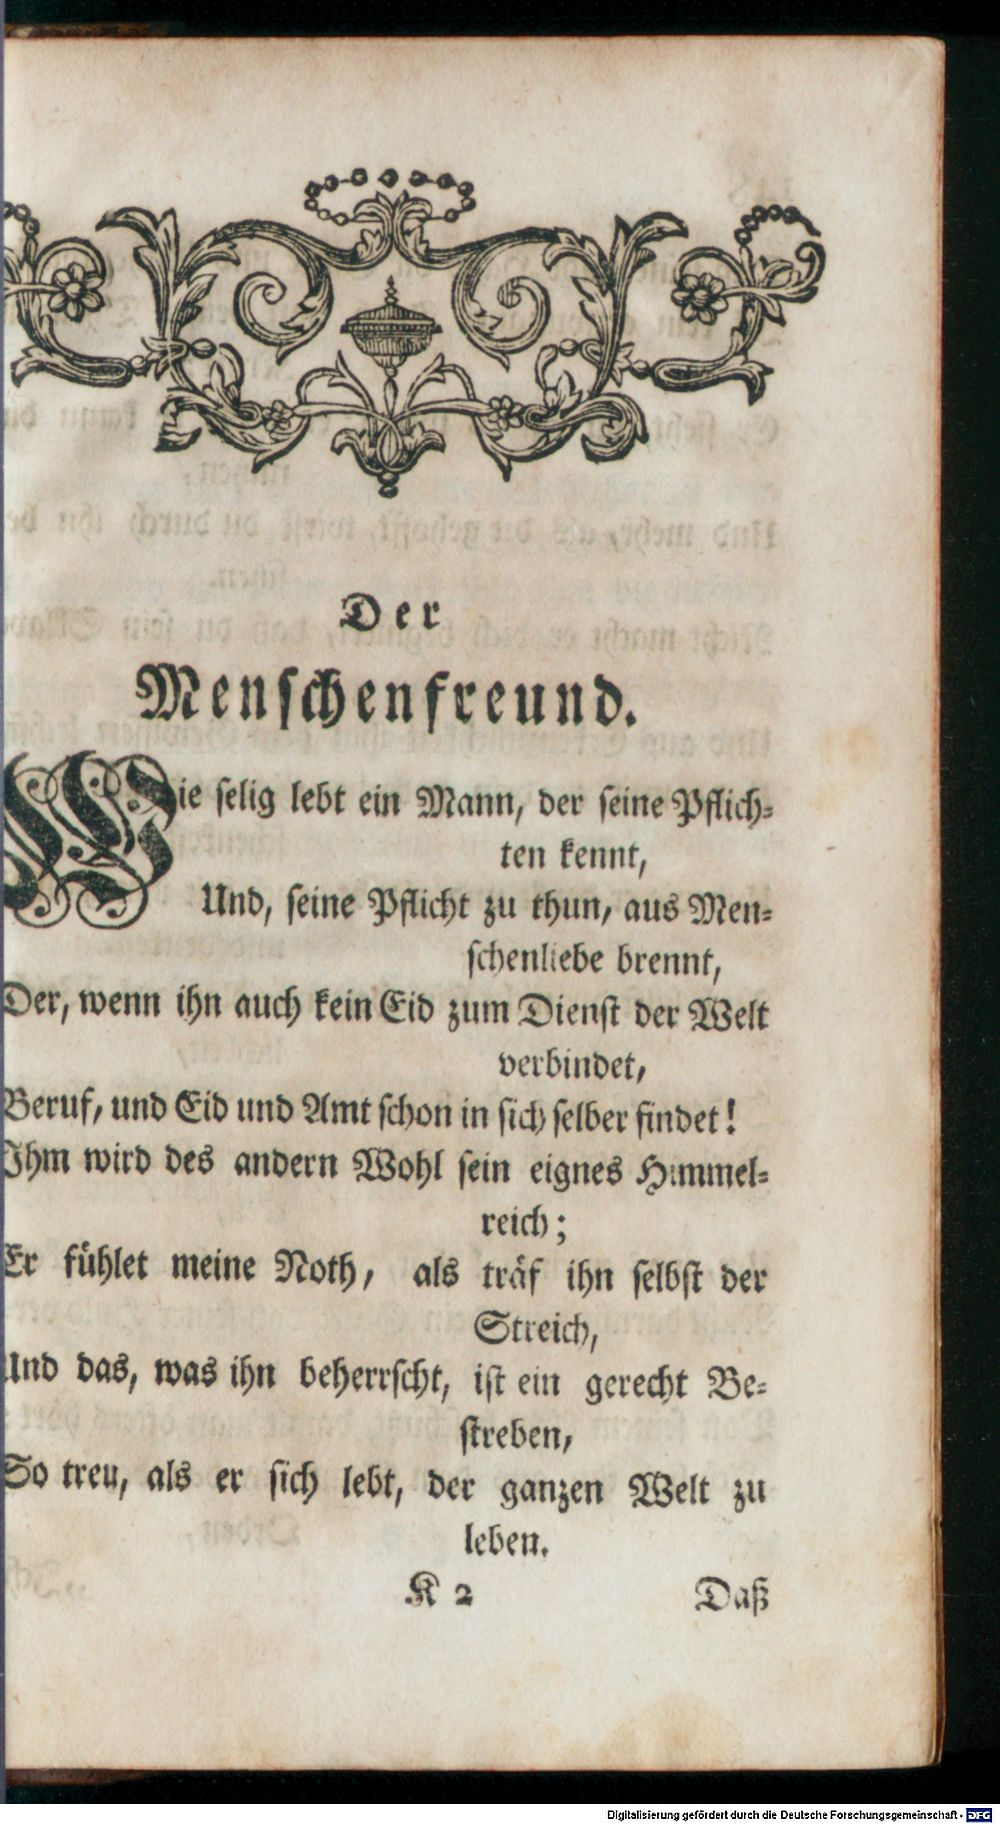 Der
Menschenfreund.
Wie selig lebt ein Mann, der seine Pflich-
ten kennt,
Und, seine Pflicht zu thun, aus Men-
schenliebe brennt,
Der, wenn ihn auch kein Eid zum Dienst der Welt
verbindet,
Beruf, und Eid und Amt schon in sich selber findet!
Ihm wird des andern Wohl sein eignes Himmel-
reich;
Er fühlet meine Noth, als träf ihn selbst der
Streich,
Und das, was ihn beherrscht, ist ein gerecht Be-
streben,
So treu, als er sich lebt, der ganzen Welt zu
leben.
K 2 Daß
Digitalisierung gefördert durch die Deutsche Forschungsgemeinschaft - DFG